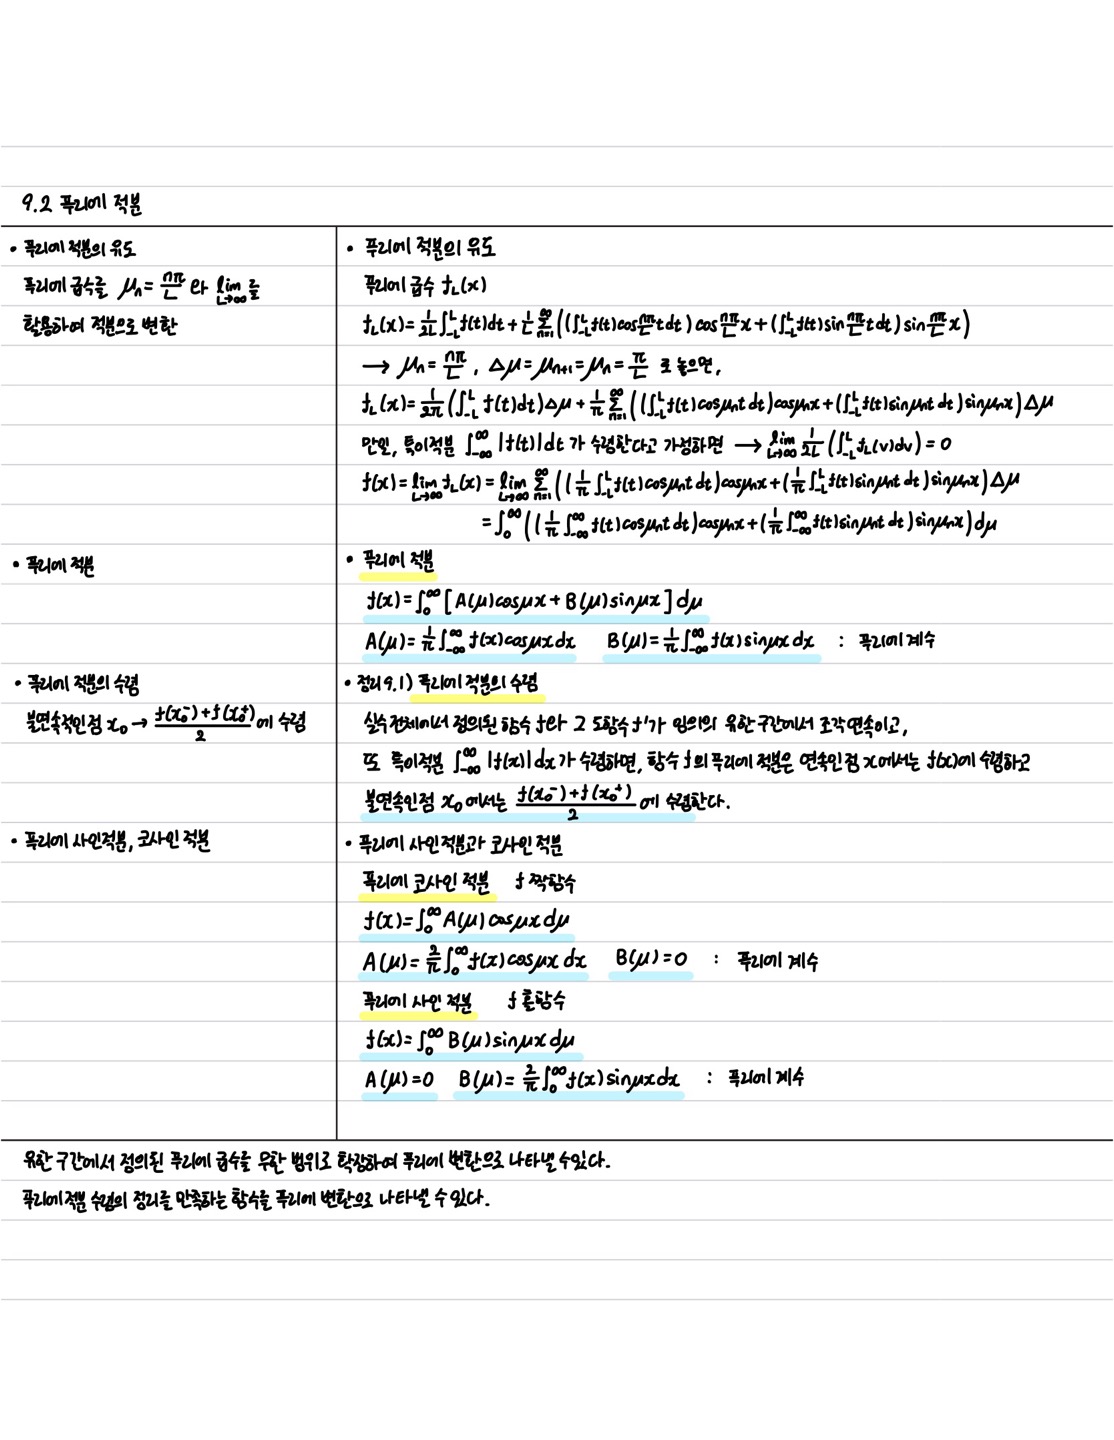 9.2 푸리에 적분
• 푸리에 적분의 유도
푸리에 급수를 μₙ = nπ/L 와 lim L→∞ 를
활용하여 적분으로 변환
• 푸리에 적분
• 푸리에 적분의 수렴
불연속적인 점 x₀ → (f(x₀⁻)+f(x₀⁺))/2 에 수렴
• 푸리에 사인적분, 코사인 적분
• 푸리에 적분의 유도
푸리에 급수 f_L(x)
f_L(x) = 1/2L ∫_{-L}^{L} f(t)dt + 1/L Σ_{n=1}^{∞} ((∫_{-L}^{L} f(t)cos nπ/L t dt) cos nπ/L x + (∫_{-L}^{L} f(t) sin nπ/L t dt) sin nπ/L x)
→ μₙ = nπ/L , Δμ = μₙ₊₁ = μₙ = π/L 로 놓으면,
f_L(x) = 1/2π (∫_{-L}^{L} f(t)dt)Δμ + 1/π Σ_{n=1}^{∞} ((∫_{-L}^{L} f(t)cosμₙt dt)cosμₙx + (∫_{-L}^{L} f(t)sinμₙt dt)sinμₙx)Δμ
만일, 특이적분 ∫_{-∞}^{∞} |f(t)|dt 가 수렴한다고 가정하면 → lim L→∞ 1/2L (∫_{-L}^{L} f_L(v)dv) = 0
f(x) = lim L→∞ f_L(x) = lim L→∞ Σ_{n=1}^{∞} ((1/π ∫_{-L}^{L} f(t)cosμₙt dt)cosμₙx + (1/π ∫_{-L}^{L} f(t)sinμₙt dt)sinμₙx)Δμ
= ∫_0^∞ ((1/π ∫_{-∞}^{∞} f(t)cosμₙt dt)cosμₙx + (1/π ∫_{-∞}^{∞} f(t)sinμₙt dt)sinμₙx)dμ
• 푸리에 적분
f(x) = ∫_0^∞ [A(μ)cosμx + B(μ)sinμx]dμ
A(μ) = 1/π ∫_{-∞}^{∞} f(x)cosμx dx B(μ) = 1/π ∫_{-∞}^{∞} f(x)sinμx dx : 푸리에 계수
• 정리9.1) 푸리에 적분의 수렴
실수 전체에서 정의된 함수 f와 그 도함수 f'가 임의의 유한 구간에서 조각연속이고,
또 특이적분 ∫_{-∞}^{∞} |f(x)|dx가 수렴하면, 함수 f의 푸리에 적분은 연속인 점 x에서는 f(x)에 수렴하고
불연속인점 x₀에서는 (f(x₀⁻)+f(x₀⁺))/2 에 수렴한다.
• 푸리에 사인적분과 코사인 적분
푸리에 코사인 적분 f 짝함수
f(x) = ∫_0^∞ A(μ)cosμx dμ
A(μ) = 2/π ∫_0^∞ f(x)cosμx dx B(μ) = 0 : 푸리에 계수
푸리에 사인 적분 f 홀함수
f(x) = ∫_0^∞ B(μ)sinμx dμ
A(μ) = 0 B(μ) = 2/π ∫_0^∞ f(x)sinμx dx : 푸리에 계수
유한 구간에서 정의된 푸리에 급수를 무한 범위로 확장하여 푸리에 변환으로 나타낼 수있다.
푸리에적분 수렴의 정리를 만족하는 함수를 푸리에 변환으로 나타낼 수 있다.